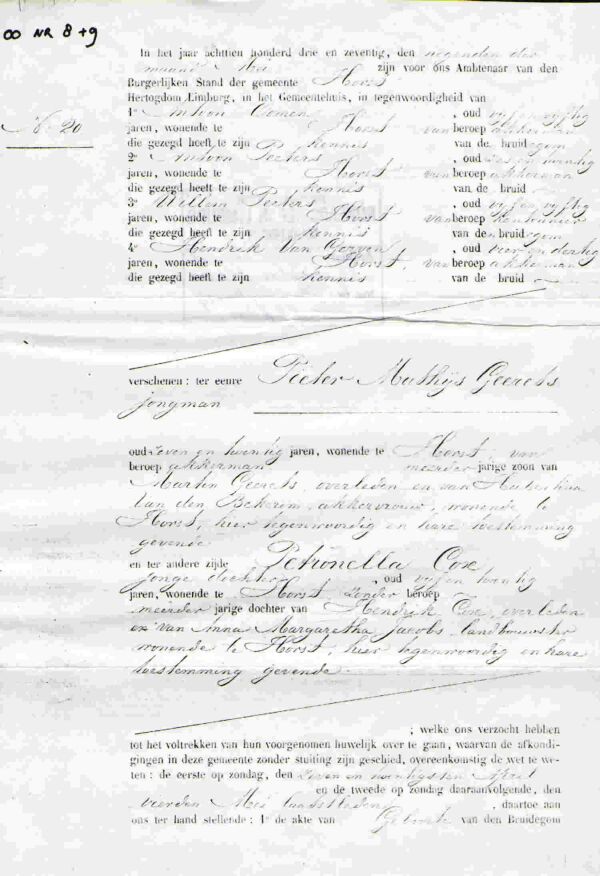 ∞ NR 8+9
In het jaar achttien honderd drie en zeventig, den negenden der
maand Mei zijn voor ons Ambtenaar van den
Burgerlijken Stand der gemeente Horst
Hertogdom Limburg, in het Gemeentehuis, in tegenwoordigheid van
No. 20
1e Antoon , oud vijf en vijftig
jaren, wonende te Horst van beroep akkerman
die gezegd heeft te zijn kennis van de bruidegom
2e Antoon Peeters , oud en twintig
jaren, wonende te Horst van beroep akkerman
die gezegd heeft te zijn kennis van de bruid
3e Willem Peeters , oud vijf en vijftig
jaren, wonende te Horst van beroep
die gezegd heeft te zijn kennis van de bruidegom
4e Hendrik Van , oud vier en dertig
jaren, wonende te Horst, van beroep akkerman
die gezegd heeft te zijn kennis van de bruid
verschenen: ter eenre Pieter Mathijs Geerets
jongman
oud zeven en twintig jaren, wonende te Horst, van
beroep akkerman meerder jarige zoon van
Martin Geerets, overleden en van Hubertina
Van den akkervrouw, wonende te
Horst, hier tegenwoordig en hare toestemming
gevende
en ter andere zijde Petronella Cox
jonge dochter , oud vijf en twintig
jaren, wonende te Horst, zonder beroep
meerder jarige dochter van Hendrik Cox, overleden
en van Anna Margaretha Jacobs, landbouwster
wonende te Horst, hier tegenwoordig en hare
toestemming gevende
; welke ons verzocht hebben
tot het voltrekken van hun voorgenomen huwelijk over te gaan, waarvan de afkondi-
gingen in deze gemeente zonder stuiting zijn geschied, overeenkomstig de wet te we-
ten: de eerste op zondag, den zeven en twintigsten April
en de tweede op zondag daaraanvolgende, den
vierden Mei laatstleden , daartoe aan
ons ter hand stellende: 1e de akte van Geboorte van den Bruidegom